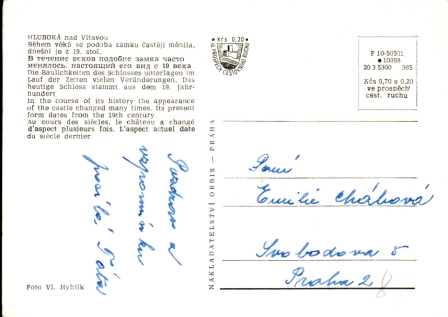 HLUBOKÁ nad Vltavou
Během věků se podoba zámku častěji měnila,
dnešní je z 19. stol.
В течение веков подобие замка часто
менялось, настоящий его вид с 19 века
Die Baulichkeiten des Schlosses unterlagen im
Lauf der Zeiten vielen Veränderungen. Das
heutige Schloss stammt aus dem 19. Jahr-
hundert
In the course of its history the appearance
of the castle changed many times. Its present
form dates from the 19th century
Au cours des siècles, le château a changé
d'aspect plusieurs fois. L'aspect actuel date
du siècle dernier
Foto Vl. Hyblík
Pozdrav a
vzpomínku
posílá Táta
NAKLADATELSTVÍ ORBIS — PRAHA
Kčs 0,20
VE PROSPĚCH CESTOVNÍHO RUCHU
F 10-50501
10368
20 3 5300 365
Kčs 0,70 a 0,20
ve prospěch
cest. ruchu
Paní
Emilie Chábová
Svobodova 5
Praha 2
8